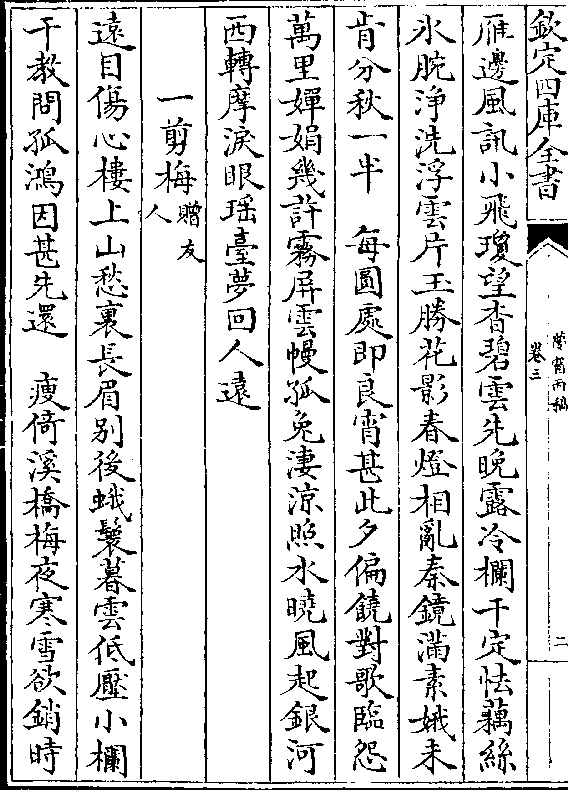 欽定四庫全書
夢窗丙稿
卷三
二
雁邊風訊小飛瓊望杳碧雲先晚露冷欄干定怯藕絲
氷腕浄洗浮雲片玉勝花影春燈相亂秦鏡滿素娥未
肯分秋一半　每圓處即良宵甚此夕偏饒對歌臨怨
萬里嬋娟幾許霧屏雲幔孤兔淒涼照水曉風起銀河
西轉摩淚眼瑶臺夢回人遠
一剪梅 贈友人
遠目傷心樓上山愁裏長眉别後蛾鬟暮雲低壓小欄
干教問孤鴻因甚先還　瘦倚溪橋梅夜寒雪欲銷時